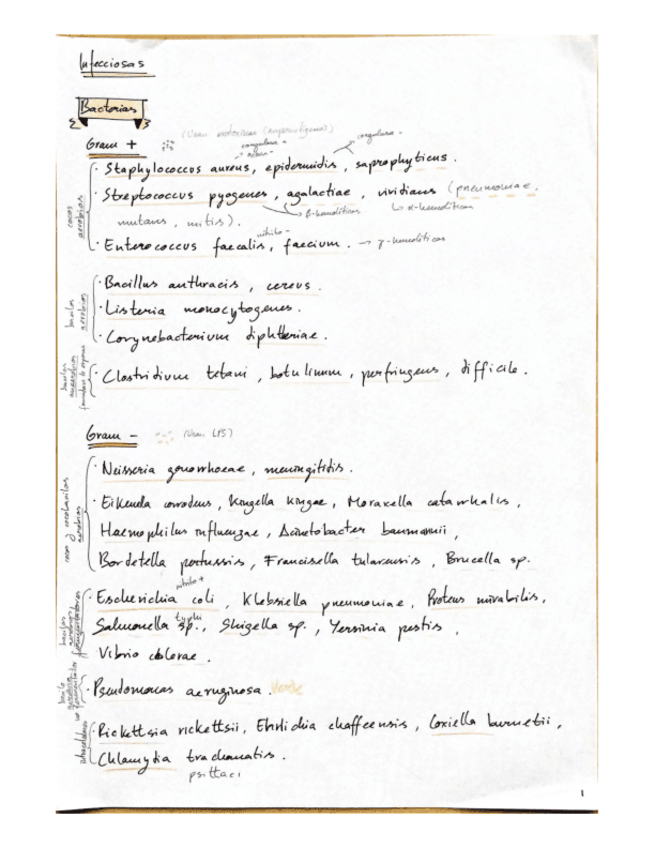 Infecciosas
Bacterias
Gram + (Usan exotoxinas (superantígenos))
coagulasa + coagulasa -
· Staphylococcus aureus, epidermidis, saprophyticus.
· Streptococcus pyogenes, agalactiae, viridians (pneumoniae,
β-hemolíticos α-hemolíticos
mutans, mitis).
nitrito -
· Enterococcus faecalis, faecium. → γ-hemolíticos
cocos aerobios
· Bacillus anthracis, cereus.
· Listeria monocytogenes.
· Corynebacterium diphteriae.
bacilos aerobios
· Clostridium tetani, botulinum, perfringens, difficile.
bacilos anaerobios formadores de esporas
Gram - (Usan LPS)
· Neisseria gonorrhoeae, meningititis.
· Eikenella corrodens, Kingella kingae, Moraxella catarrhalis,
Haemophilus influenzae, Acinetobacter baumannii,
Bordetella pertussis, Francisella tularensis, Brucella sp.
cocos y cocobacilos aerobios
nitrito +
· Escherichia coli, Klebsiella pneumoniae, Proteus mirabilis,
typhi
Salmonella sp., Shigella sp., Yersinia pestis,
Vibrio cholerae.
bacilos aerobios fermentadores
· Pseudomonas aeruginosa. Verde
bacilo aerobio no fermentador
· Rickettsia rickettsii, Ehrlichia chaffeensis, Coxiella burnetii,
Chlamydia trachomatis.
psittaci
intracelulares
1